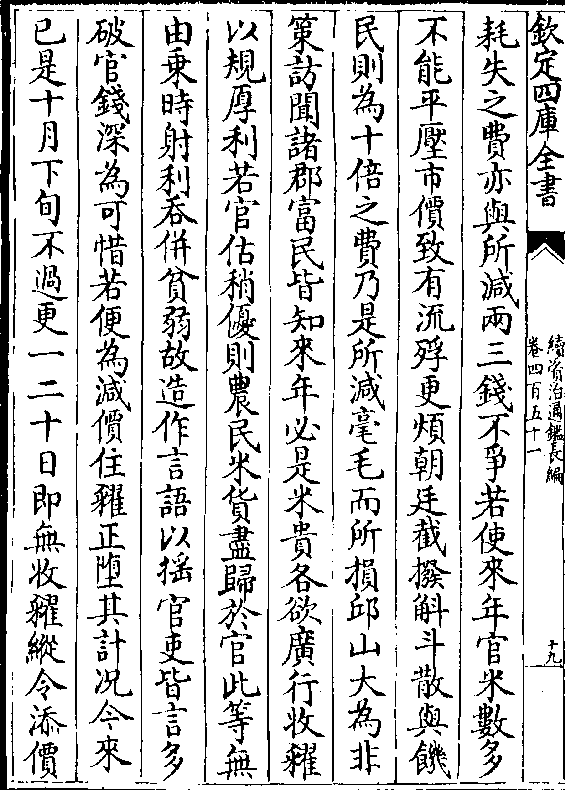 欽定四庫全書
續資治通鑑長編
卷四百五十一
十九
耗失之費亦與所減兩三錢不爭若使來年官米數多
不能平壓市價致有流殍更煩朝廷截撥斛斗散與饑
民則為十倍之費乃是所減毫毛而所損邱山大為非
策訪聞諸郡富民皆知來年必是米貴各欲廣行收糴
以規厚利若官估稍優則農民米貨盡歸於官此等無
由乗時射利吞併貧弱故造作言語以揺官吏皆言多
破官錢深為可惜若便為減價住糴正墮其計况今來
已是十月下旬不過更一二十日即無收糴縱令添價